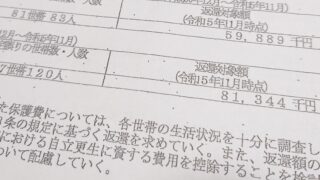 返還対象額
８１世帯８３人
（令和５年11月時点）
５９，８８９千円
12月～令和5年11月）
の世帯数・人数
返還対象額
（令和５年11月時点）
７世帯１２０人
８１，３４４千円
た保護費については、各世帯の生活状況を十分に調査し
条の規定に基づく返還を求めていく。また、返還額の
における自立更生に資する費用を控除することを検
ついて配慮していく。